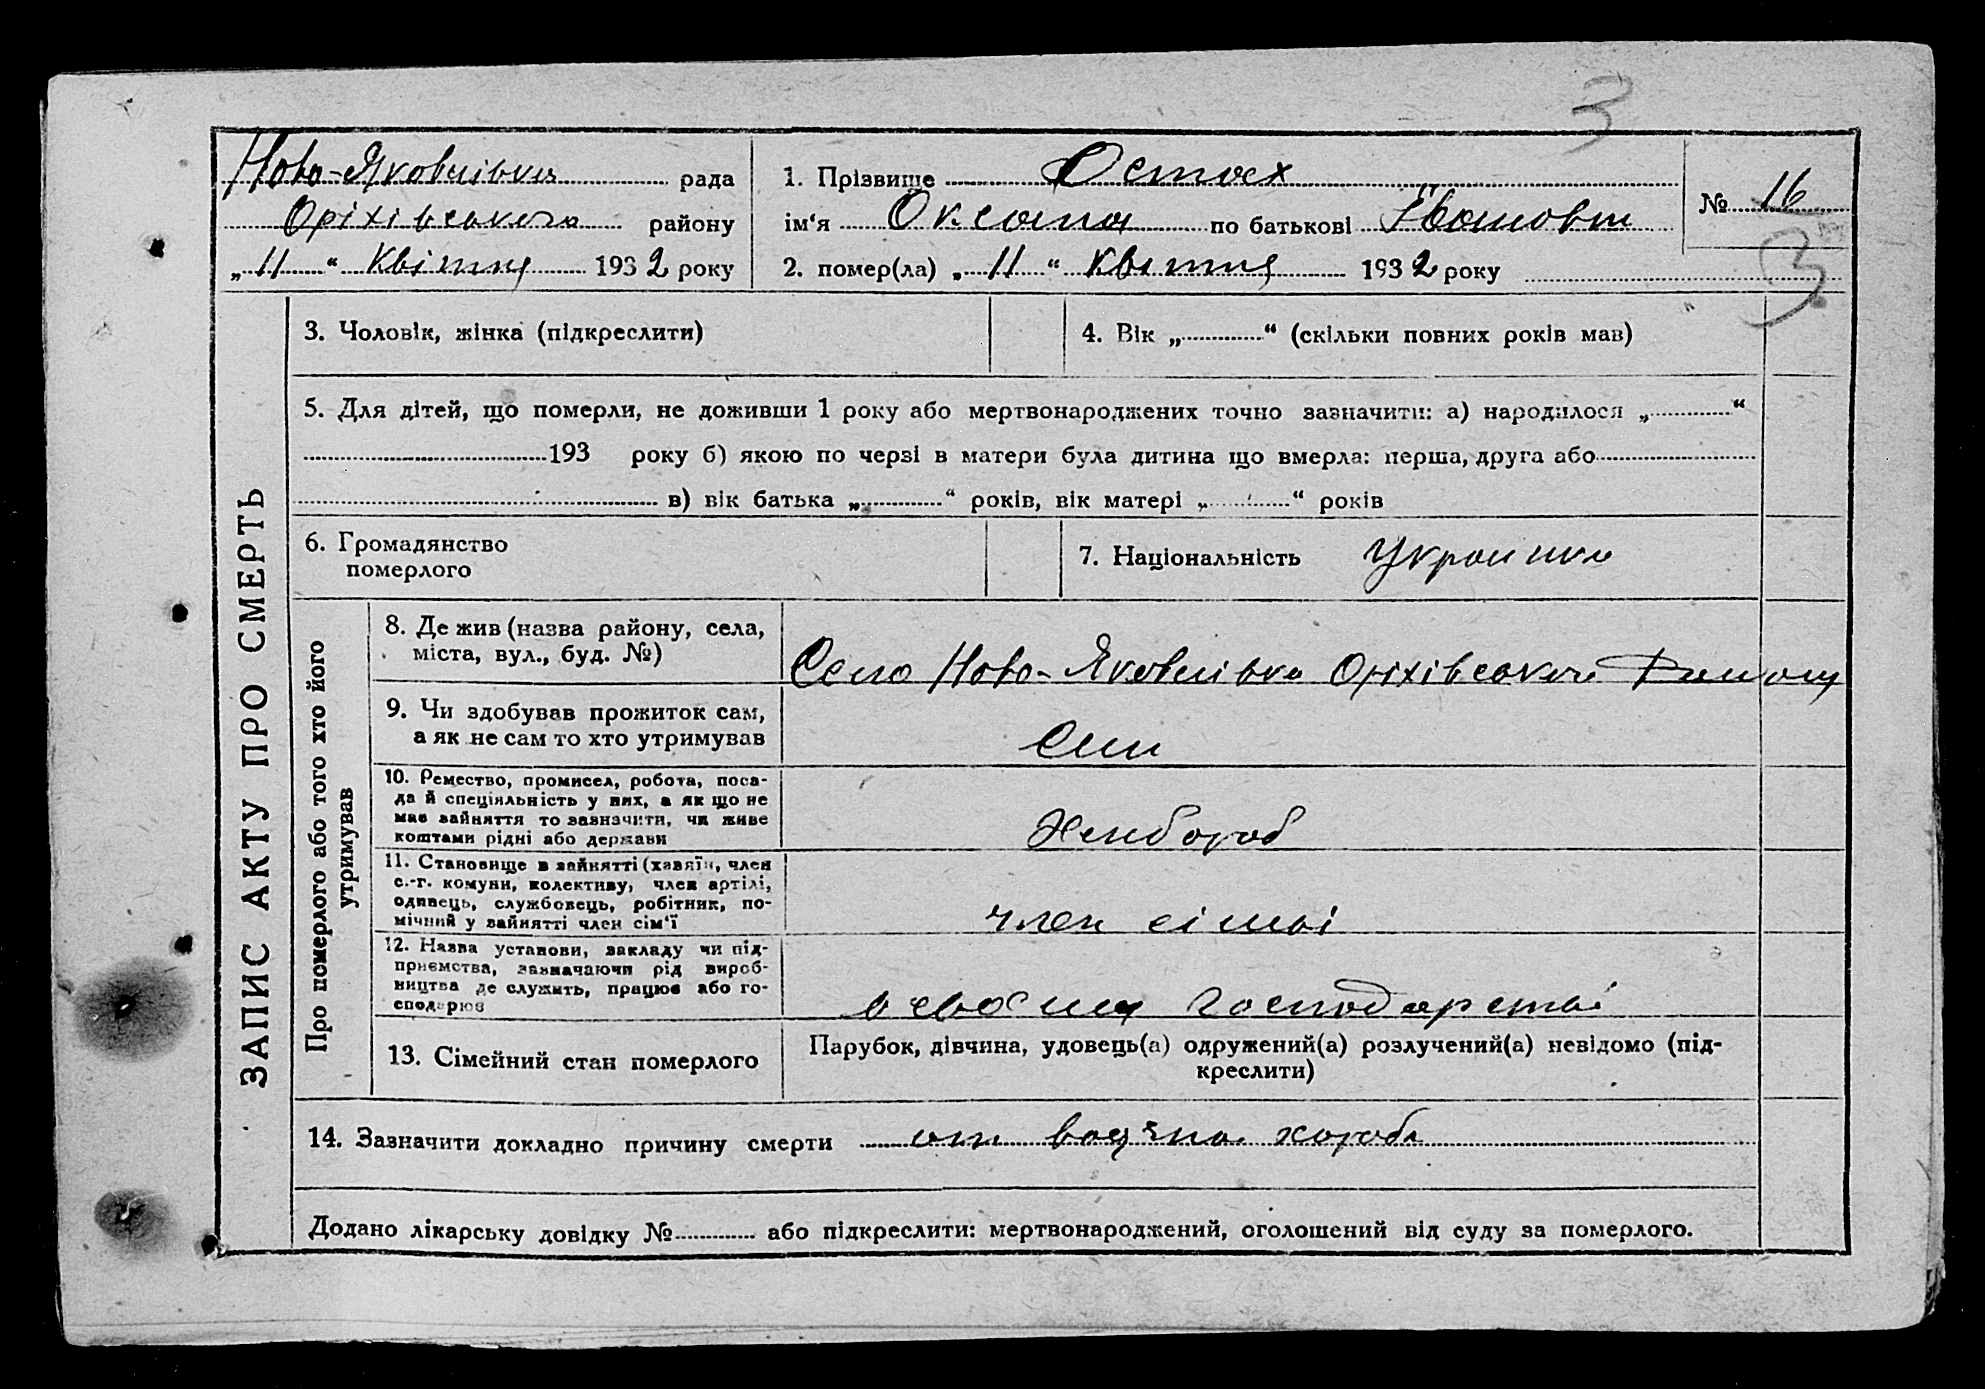 3
Ново-Яковлівка рада
Оріхівського району
„ 11 “ Квітня 1932 року
1. Прізвище Остах
ім‘я Оксана по батькові Івановн
2. помер(ла) „ 11 “ Квітня 1932 року
№ 16
3
ЗАПИС АКТУ ПРО СМЕРТЬ
3. Чоловік, жінка (підкреслити)
4. Вік „ “ (скільки повних років мав)
5. Для дітей, що померли, не доживши 1 року або мертвонароджених точно зазначити: а) народилося „ “
193 року б) якою по черзі в матери була дитина що вмерла: перша, друга або
в) вік батька „ “ років, вік матері „ “ років
6. Громадянство
померлого
7. Національність Украинка
Про померлого або того хто його
утримував
8. Де жив (назва району, села,
міста, вул., буд. №)
Село Ново-Яковлівка Оріхівського Району
9. Чи здобував прожиток сам,
а як не сам то хто утримував
Син
10. Ремество, промисел, робота, поса-
да й спеціяльність у них, а як що не
має зайняття то зазначити, чи живе
коштами рідні або держави
Хлібороб
11. Становище в зайнятті (хазяїн, член
с.-г. комуни, колективу, член артілі,
одинець, службовець, робітник, по-
мічний у зайнятті член сім‘ї
член сімьі
12. Назва установи, закладу чи під-
приємства, зазначаючи рід вироб-
ництва де служить, працює або го-
сподарює
в своему господарстві
13. Сімейний стан померлого
Парубок, дівчина, удовець(а) одружений(а) розлучений(а) невідомо (під-
креслити)
14. Зазначити докладно причину смерти от водяна хороба
Додано лікарську довідку № або підкреслити: мертвонароджений, оголошений від суду за померлого.